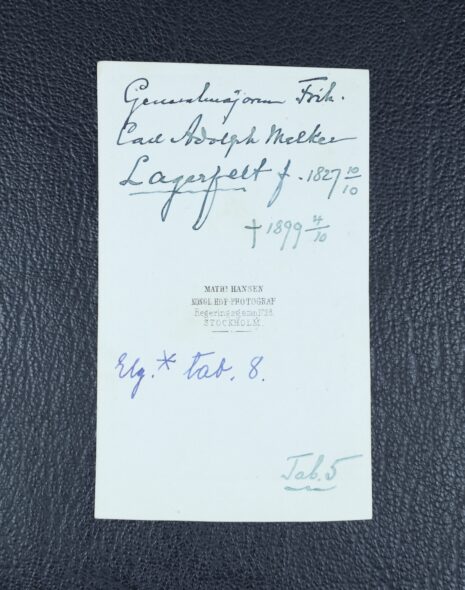 Generalmajoren Frih.
Carl Adolph Melker
Lagerfelt f. 1827 10/10
† 1899 4/10
MATHS HANSEN
KONGL HOF-PHOTOGRAF
Regeringsgatan No 18.
STOCKHOLM.
Elg.* tab. 8.
Tab. 5